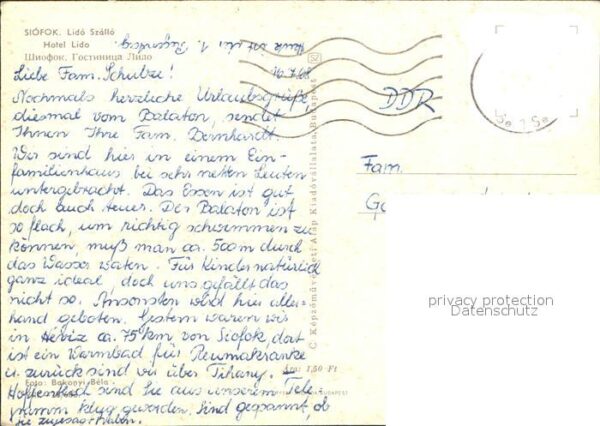 SIÓFOK. Lidó Szálló
Hotel Lido
Шиофок. Гостиница Лидо
Heute ist der 1. Regentag
16.7.68
Liebe Fam. Schulze!
Nochmals herzliche Urlaubsgrüße,
diesmal vom Balaton, sendet
Ihnen Ihre Fam. Bernhardt.
Wir sind hier in einem Ein-
familienhaus bei sehr netten Leuten
untergebracht. Das Essen ist gut
doch auch teuer. Der Balaton ist
so flach, um richtig schwimmen zu
können, muß man ca. 500m durch
das Wasser waten. Für Kinder natürlich
ganz ideal, doch uns gefällt das
nicht so. Ansonsten wird hier aller-
hand geboten. Gestern waren wir
in Héviz ca. 75 km von Siofok, dort
ist ein Warmbad für Reumakranke
u. zurück sind wir über Tihany.
Hoffentlich sind Sie aus unserem Tele-
gramm klug geworden. Sind gespannt, ob
Sie zugesagt haben.
Foto: Bakonyi Béla
C Képzőművészeti Alap Kiadóvállalata, Budapest
52
Ára: 1,50 Ft
BUDAPEST
DDR
Fam.
privacy protection
Datenschutz